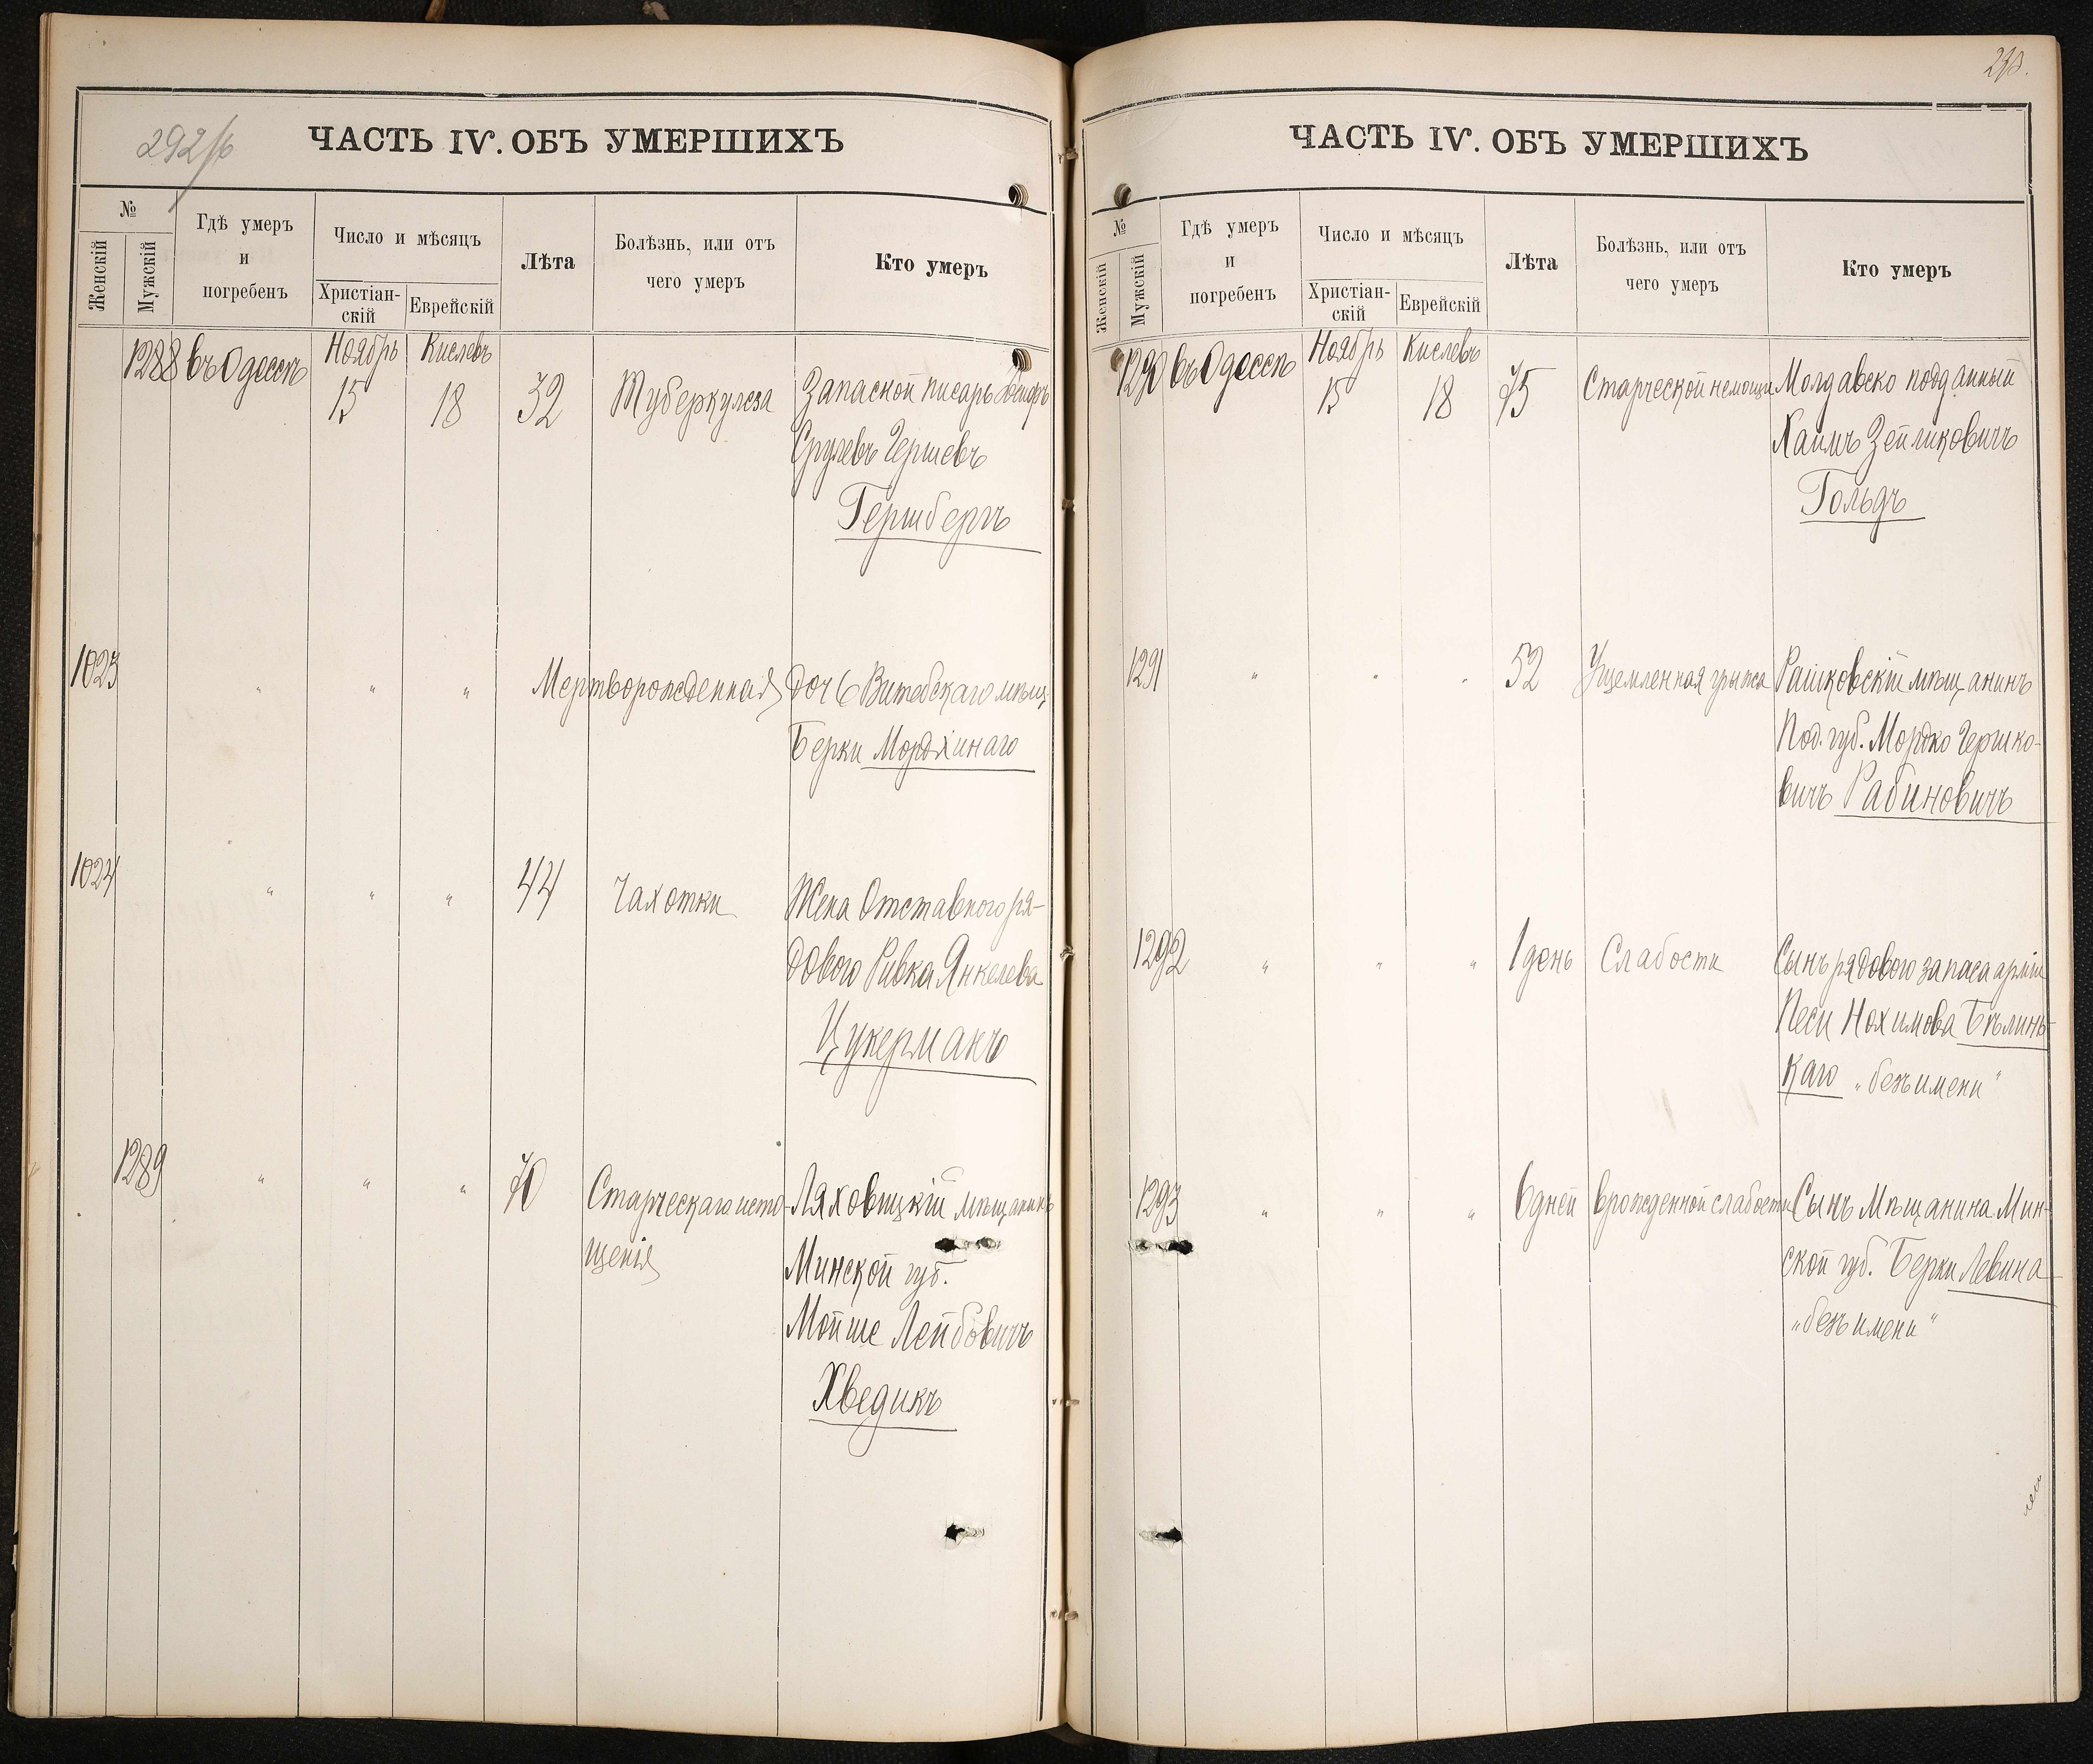 292/об
ЧАСТЬ IV. ОБЪ УМЕРШИХЪ
№
Женскій
Мужскій
Гдѣ умеръ
и
погребенъ
Число и мѣсяцъ
Христіан-
скій
Еврейскій
Лѣта
Болѣзнь, или отъ
чего умеръ
Кто умеръ
1288 въ Одессѣ Ноябрь 15 Кислевъ 18 32 Туберкулеза Запасной писарь
Срулевъ Гершевъ
Гершбергъ
1023 " " " Мертворожденная дочь Витебскаго мѣщ.
Берки Мордхинаго
1024 " " " 44 Чахотки Жена Отставного ря-
дового Ривка Янкелева
Цукерманъ
1289 " " " 70 Старческаго исто- Ляховицкій мѣщанинъ
щенія Минской губ.
Мойше Лейбовичъ
Хведикъ
293.
ЧАСТЬ IV. ОБЪ УМЕРШИХЪ
№
Женскій
Мужскій
Гдѣ умеръ
и
погребенъ
Число и мѣсяцъ
Христіан-
скій
Еврейскій
Лѣта
Болѣзнь, или отъ
чего умеръ
Кто умеръ
1290 въ Одессѣ Ноябрь 15 Кислевъ 18 75 Старческой немощи Молдавско подданный
Хаимъ Зейликовичъ
Гольдъ
1291 " " " 52 Ущемленная грыжа Рашковскій мѣщанинъ
Под. губ. Мордко Гершко-
вичъ Рабиновичъ
1292 " " " 1 день Слабости Сынъ рядового запаса арміи
Песи Нохимова Бѣлинь-
каго „безъ имени“
1293 " " " 6 дней врожденной слабости Сынъ Мѣщанина Мин-
ской губ. Берки Левина
„безъ имени“